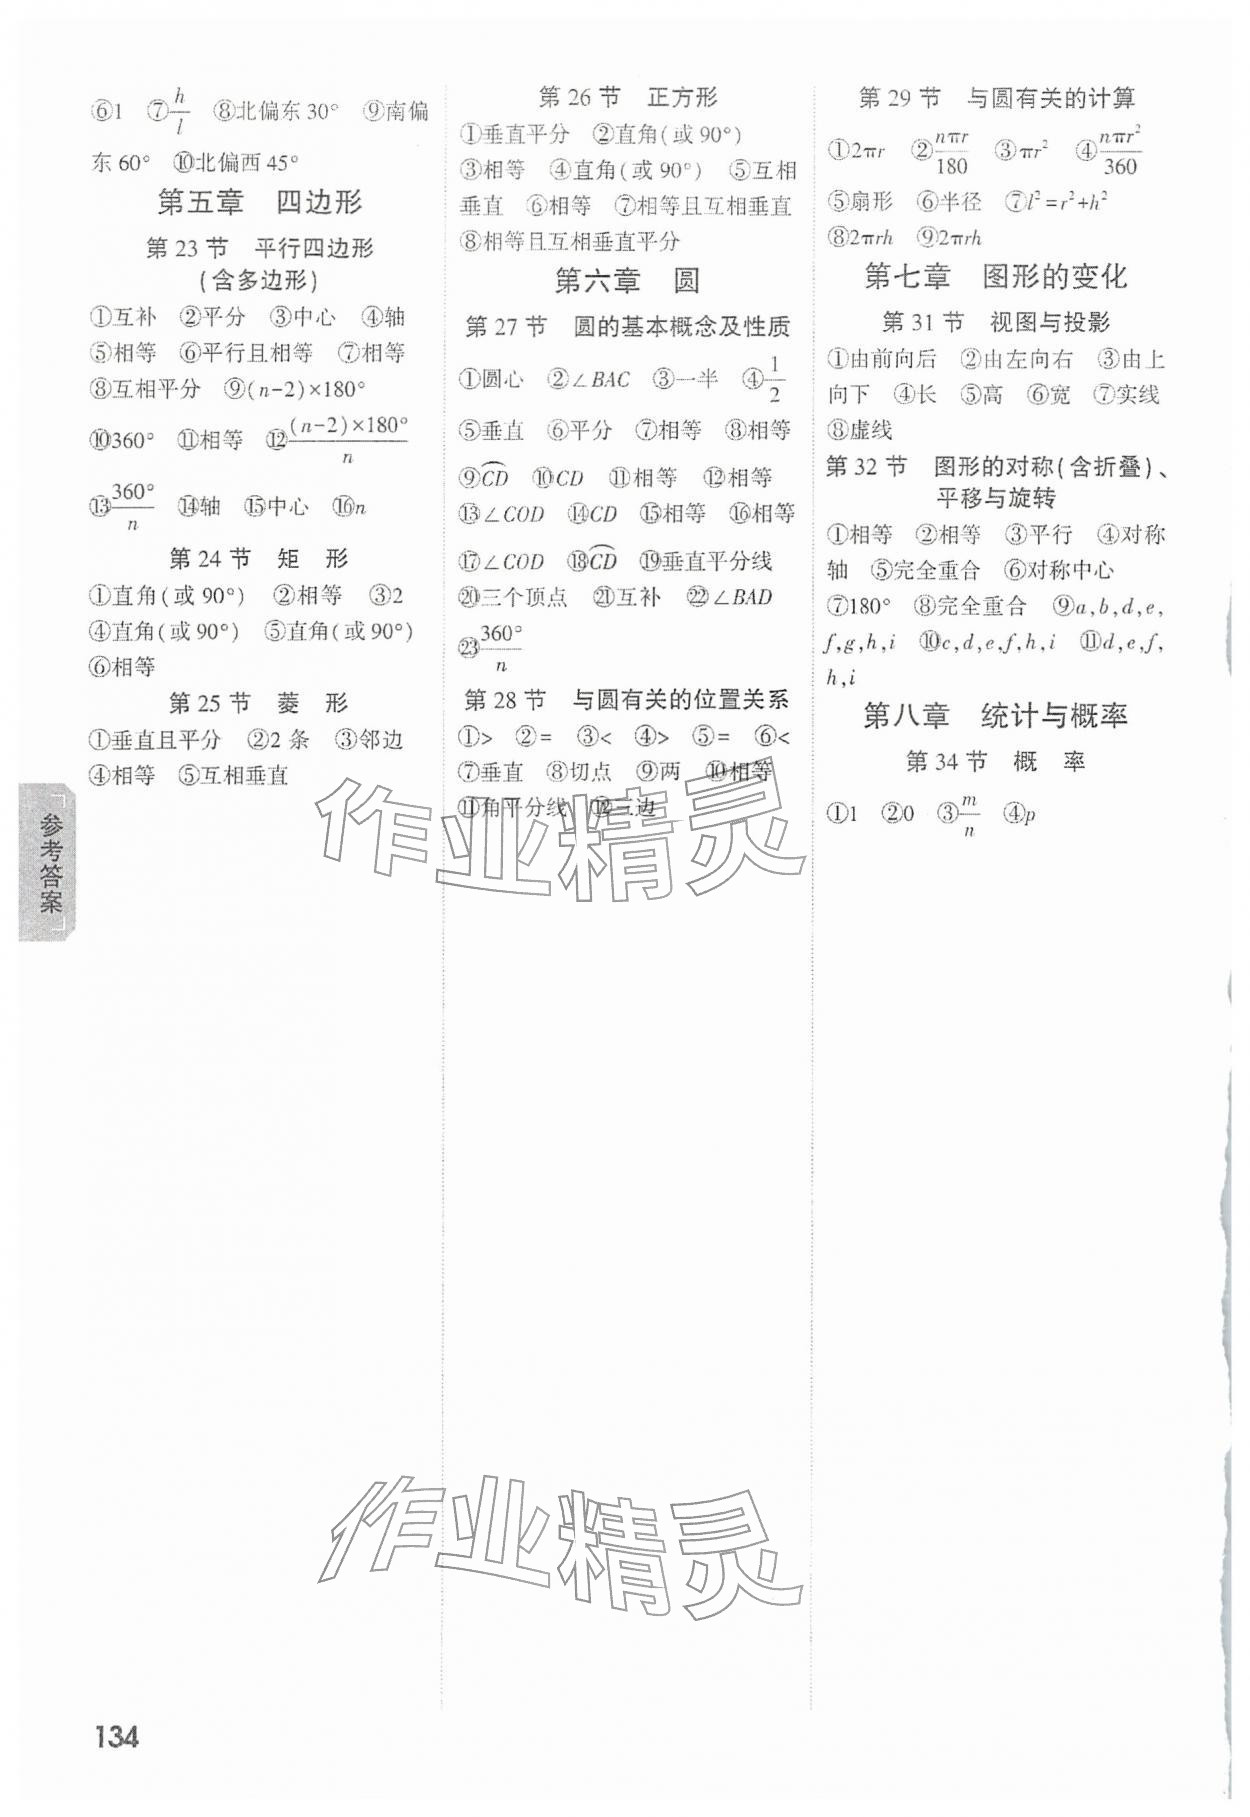 ⑥1 ⑦h/l ⑧北偏东30° ⑨南偏
东60° ⑩北偏西45°
第五章 四边形
第23节 平行四边形
(含多边形)
①互补 ②平分 ③中心 ④轴
⑤相等 ⑥平行且相等 ⑦相等
⑧互相平分 ⑨(n-2)×180°
⑩360° ⑪相等 ⑫(n-2)×180°/n
⑬360°/n ⑭轴 ⑮中心 ⑯n
第24节 矩 形
①直角(或90°) ②相等 ③2
④直角(或90°) ⑤直角(或90°)
⑥相等
第25节 菱 形
①垂直且平分 ②2条 ③邻边
④相等 ⑤互相垂直
第26节 正方形
①垂直平分 ②直角(或90°)
③相等 ④直角(或90°) ⑤互相
垂直 ⑥相等 ⑦相等且互相垂直
⑧相等且互相垂直平分
第六章 圆
第27节 圆的基本概念及性质
①圆心 ②∠BAC ③一半 ④1/2
⑤垂直 ⑥平分 ⑦相等 ⑧相等
⑨⌒CD ⑩CD ⑪相等 ⑫相等
⑬∠COD ⑭CD ⑮相等 ⑯相等
⑰∠COD ⑱⌒CD ⑲垂直平分线
⑳三个顶点 ㉑互补 ㉒∠BAD
㉓360°/n
第28节 与圆有关的位置关系
①> ②= ③< ④> ⑤= ⑥<
⑦垂直 ⑧切点 ⑨两 ⑩相等
⑪角平分线 ⑫三边
第29节 与圆有关的计算
①2πr ②nπr/180 ③πr² ④nπr²/360
⑤扇形 ⑥半径 ⑦l²=r²+h²
⑧2πrh ⑨2πrh
第七章 图形的变化
第31节 视图与投影
①由前向后 ②由左向右 ③由上
向下 ④长 ⑤高 ⑥宽 ⑦实线
⑧虚线
第32节 图形的对称(含折叠)、
平移与旋转
①相等 ②相等 ③平行 ④对称
轴 ⑤完全重合 ⑥对称中心
⑦180° ⑧完全重合 ⑨a,b,d,e,
f,g,h,i ⑩c,d,e,f,h,i ⑪d,e,f,
h,i
第八章 统计与概率
第34节 概 率
①1 ②0 ③m/n ④p
参考答案
作业精灵
作业精灵
134